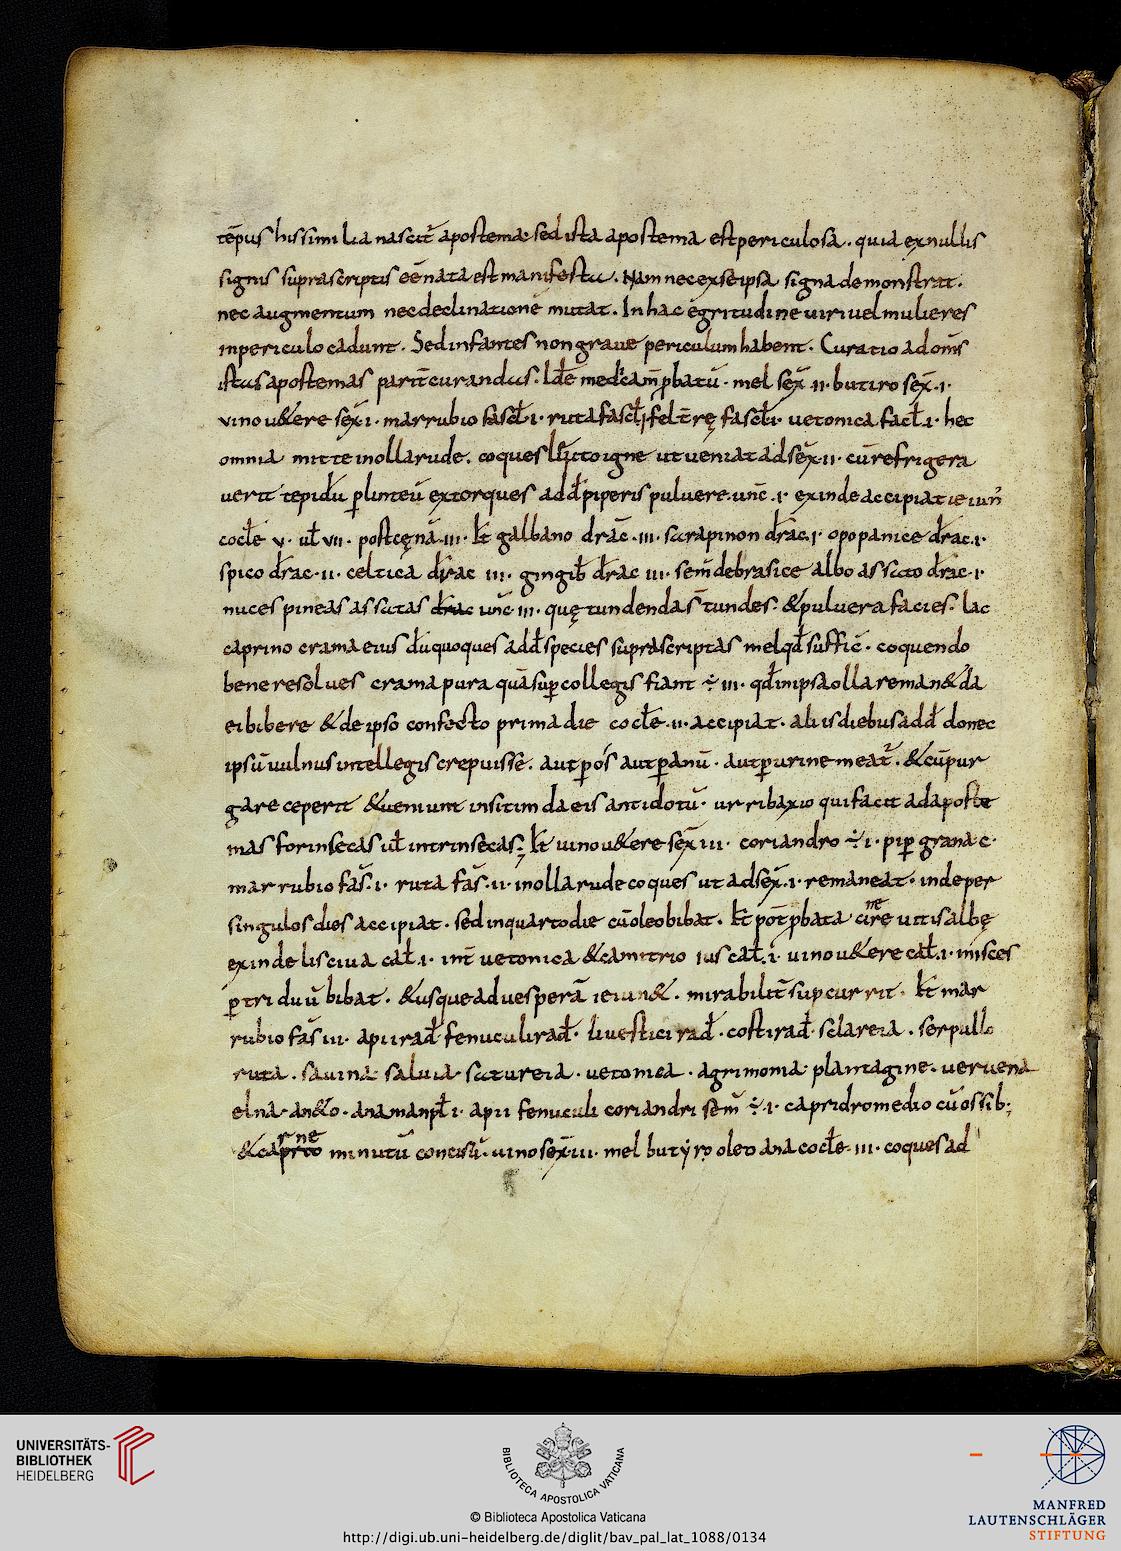 tēpus hissimilia nascit̄ apostema sed ista apostema est periculosa. quia ex nullis
signis suprascriptis eē nata est manifesta. Nam nec ex se ipsa signa demonstrat.
nec augmentum nec declinationē mutat. In hac egritudine uiri uel mulieres
in periculo cadunt. Sed infantes non graue periculum habent. Curatio ad om̄s
istas apostemas curandas. mel sex̄ ·II· butiro sex̄ ·I·
vino u&ere sex̄ I· marrubio fascł ·I· ruta fascł I· fel t̄rę fascł I· uetonica facł ·I· hec
omnia mitte in olla rude. coques igne ut ueniat ad sex̄ ·II· cū refrigera
uerit tepidū p̱ linteū extorques add̄ piperis puluere unc̄ ·I· exinde accipiat ieiuñ
cocłe ·V· uł VII· post cęnā ·III· galbano drāc ·III· sarapinon drāc ·I· opopanice drāc ·I·
spico drāc ·II· celtica drāc III· gingib̄ drāc III· sem̄ de brasice albo assato drāc ·I·
nuces pineas assatas unc̄ ·III· quę tundenda s̄ tundes. & puluera facies. lac
caprino crama eius dū quoques add̄ species suprascriptas mel qd̄ suffic̄. coquendo
bene resolues crama pura quā sup̱ collegis fiant ÷ III· qd̄ in ipsa olla reman& da
ei bibere & de ipso confecto prima die cocłe ·II· accipiat. aliis diebus add̄ donec
ipsū uulnus intellegis crepuisse. aut p̱ os aut p̱ anū. aut p̱ urine meat̄. & cū pur
gare ceperit & ueniunt insitim da eis antidotū. ur ribaxio qui facit ad aposte
mas forinsecas uł intrinsecas; uino u&ere sex̄ III· coriandro ÷ I· pip̱ grana ·C·
marrubio fas̄ ·I· ruta fas̄ ·II· in olla rude coques ut ad sex̄ ·I· remaneat. inde per
singulos dies accipiat. sed in quarto die cū oleo bibat. pot̄ p̱bata cinere uitis albę
exinde lisciua cał ·I· int̄ uetonica & camitrio ius cał ·I· uino u&ere cał ·I· misces
p̱ triduū bibat. & usque ad uesperā ieiun&. mirabilit̄ sup̱ currit. mar
rubio fas̄ III· apii rad̄ fenuculi rad̄. liuestici rad̄. costi rad̄. sclareia. serpullo
ruta. sauina. saluia. satureia. uetonica. agrimonia. plantagine. ueruena
elna. an&o. ana manpł I· apii fenuculi coriandri sem̄ ÷ ·I· capridro medio cū ossib;
& carne minutū concisū. uino sex̄ III· mel butyro oleo ana cocłe ·III· coques ad
UNIVERSITÄTS-
BIBLIOTHEK
HEIDELBERG
BIBLIOTECA APOSTOLICA VATICANA
© Biblioteca Apostolica Vaticana
http://digi.ub.uni-heidelberg.de/diglit/bav_pal_lat_1088/0134
MANFRED
LAUTENSCHLÄGER
STIFTUNG